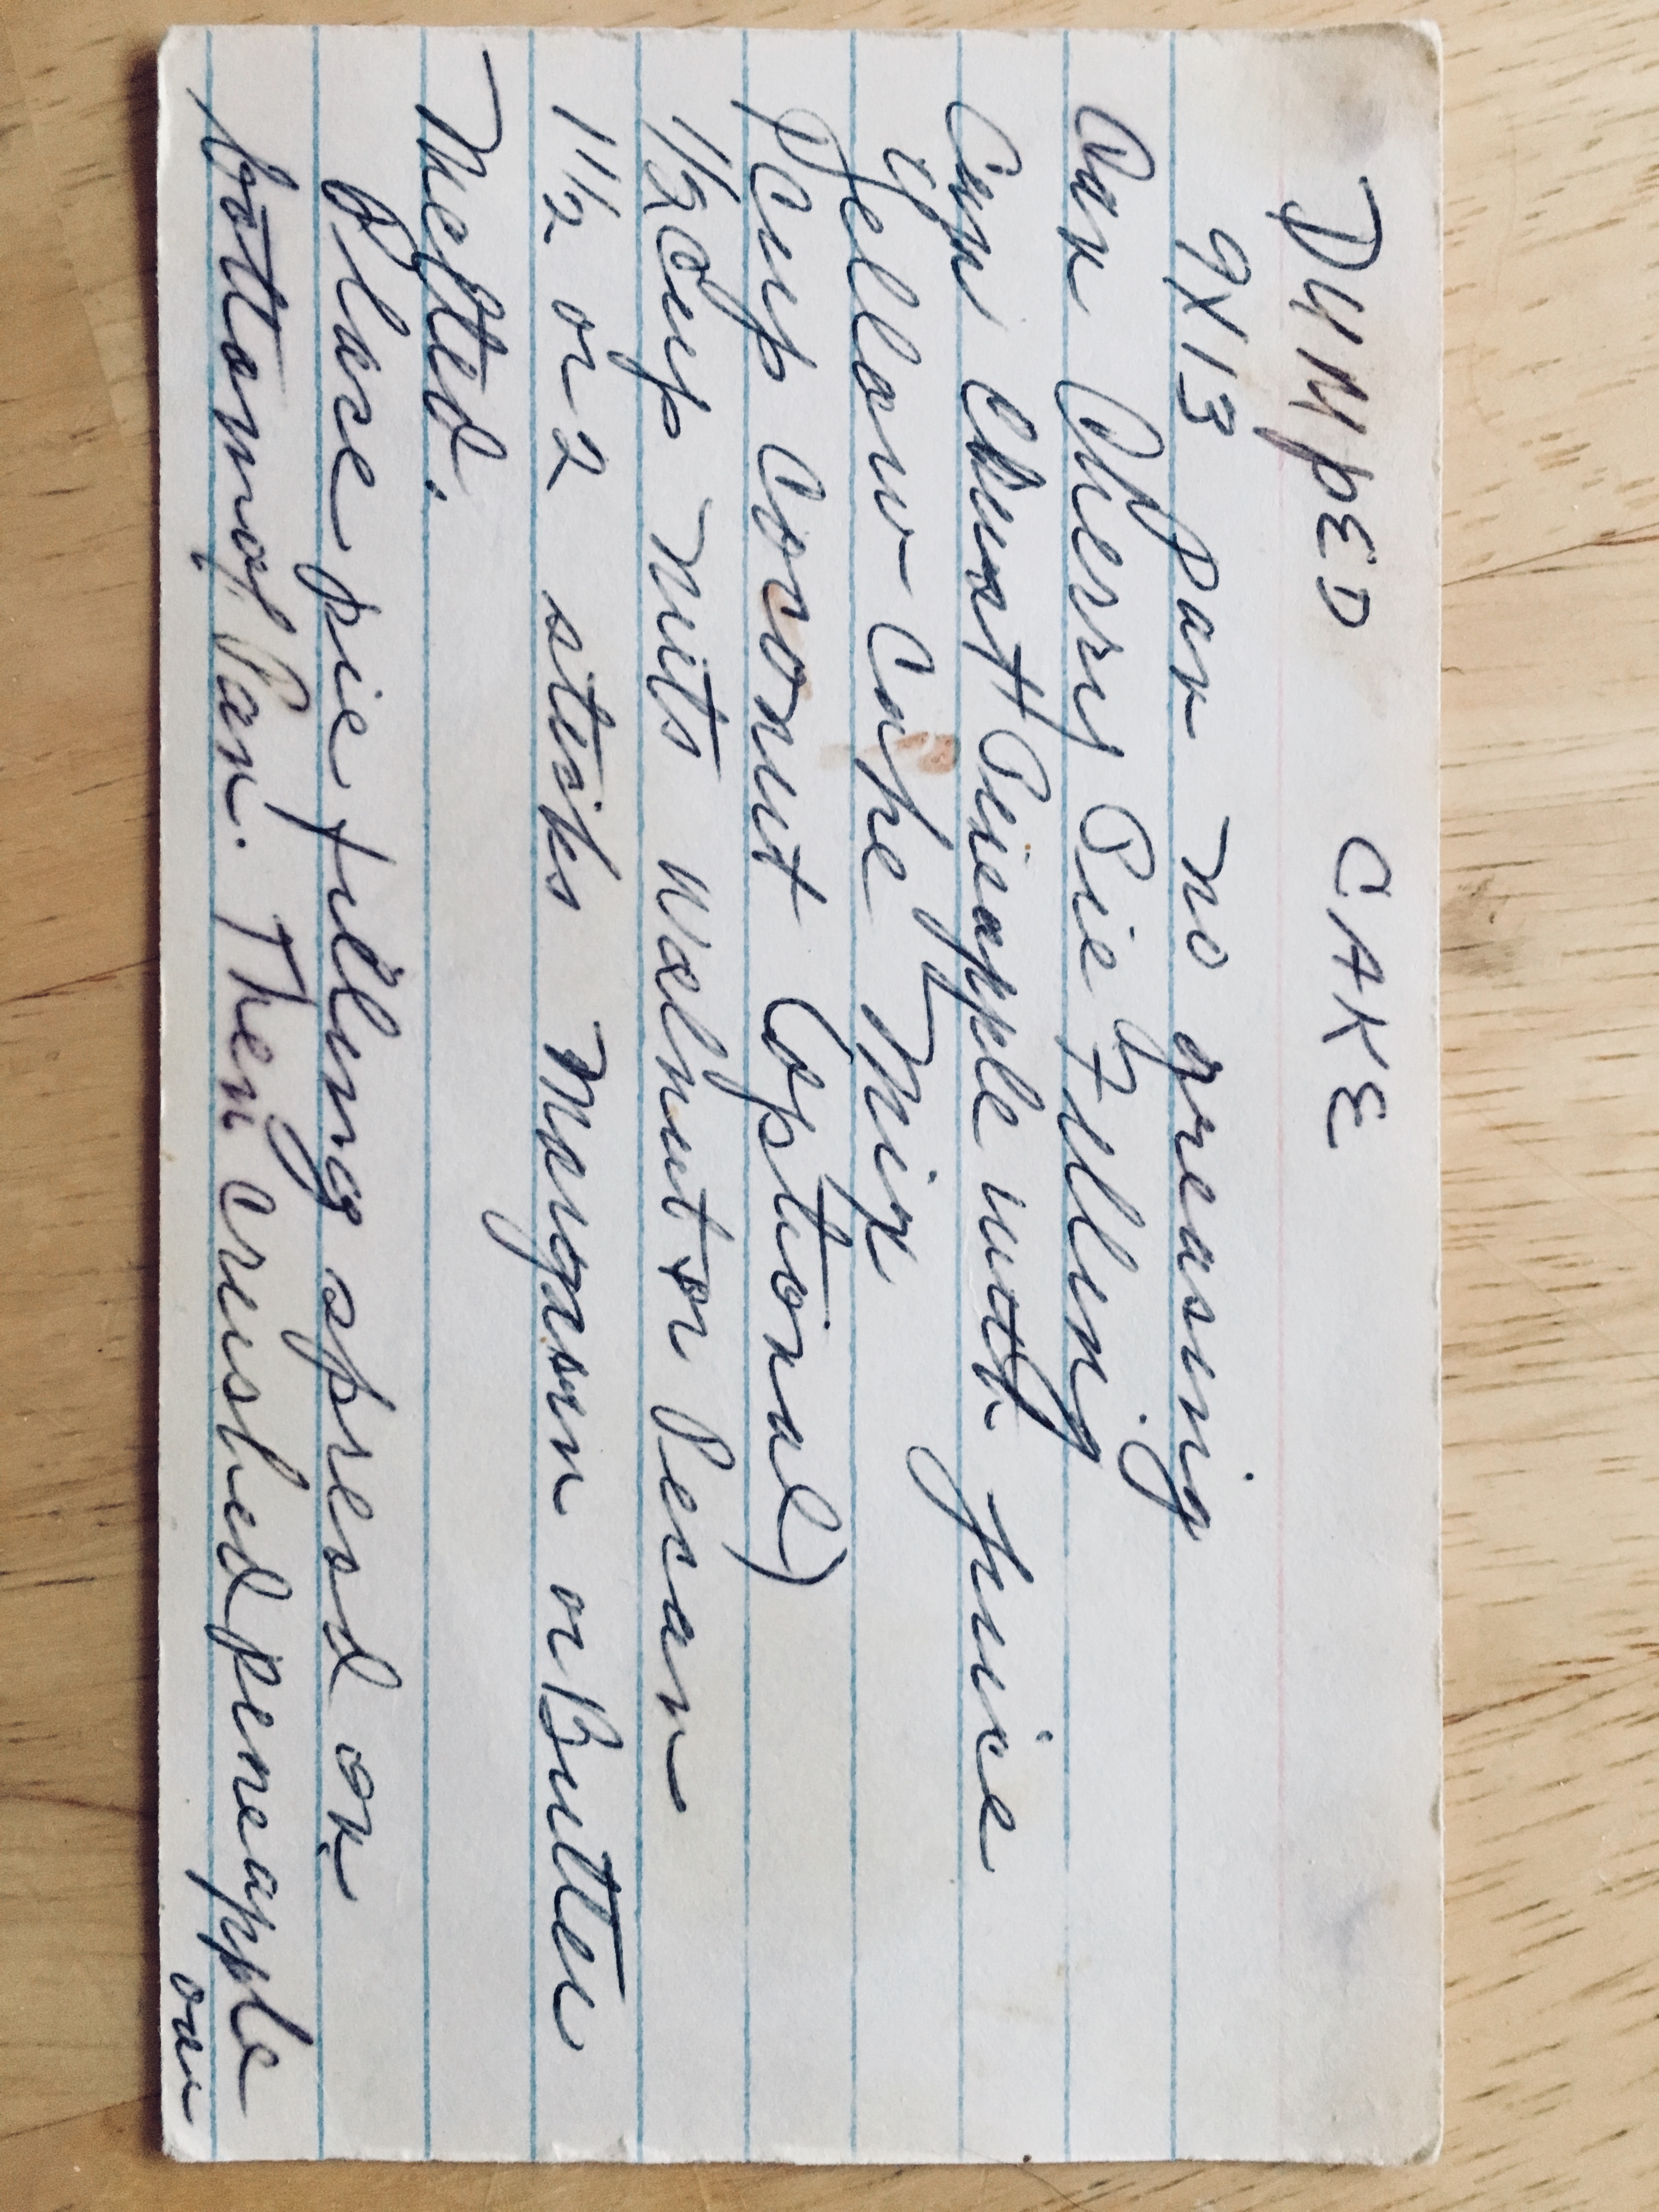 DUMpED CAKE
9X13 Pan no greasing
Can Cherry Pie Filling
Can Crush Pineapple with juice
Yellow Cake Mix
1 Cup Coconut (optional)
1/2 Cup nuts Walnut or Pecan
1 1/2 or 2 sticks Margarin or Butter
Melted.
Place pie fillings spread on
bottom of Pan. Then crushed peneapple
over